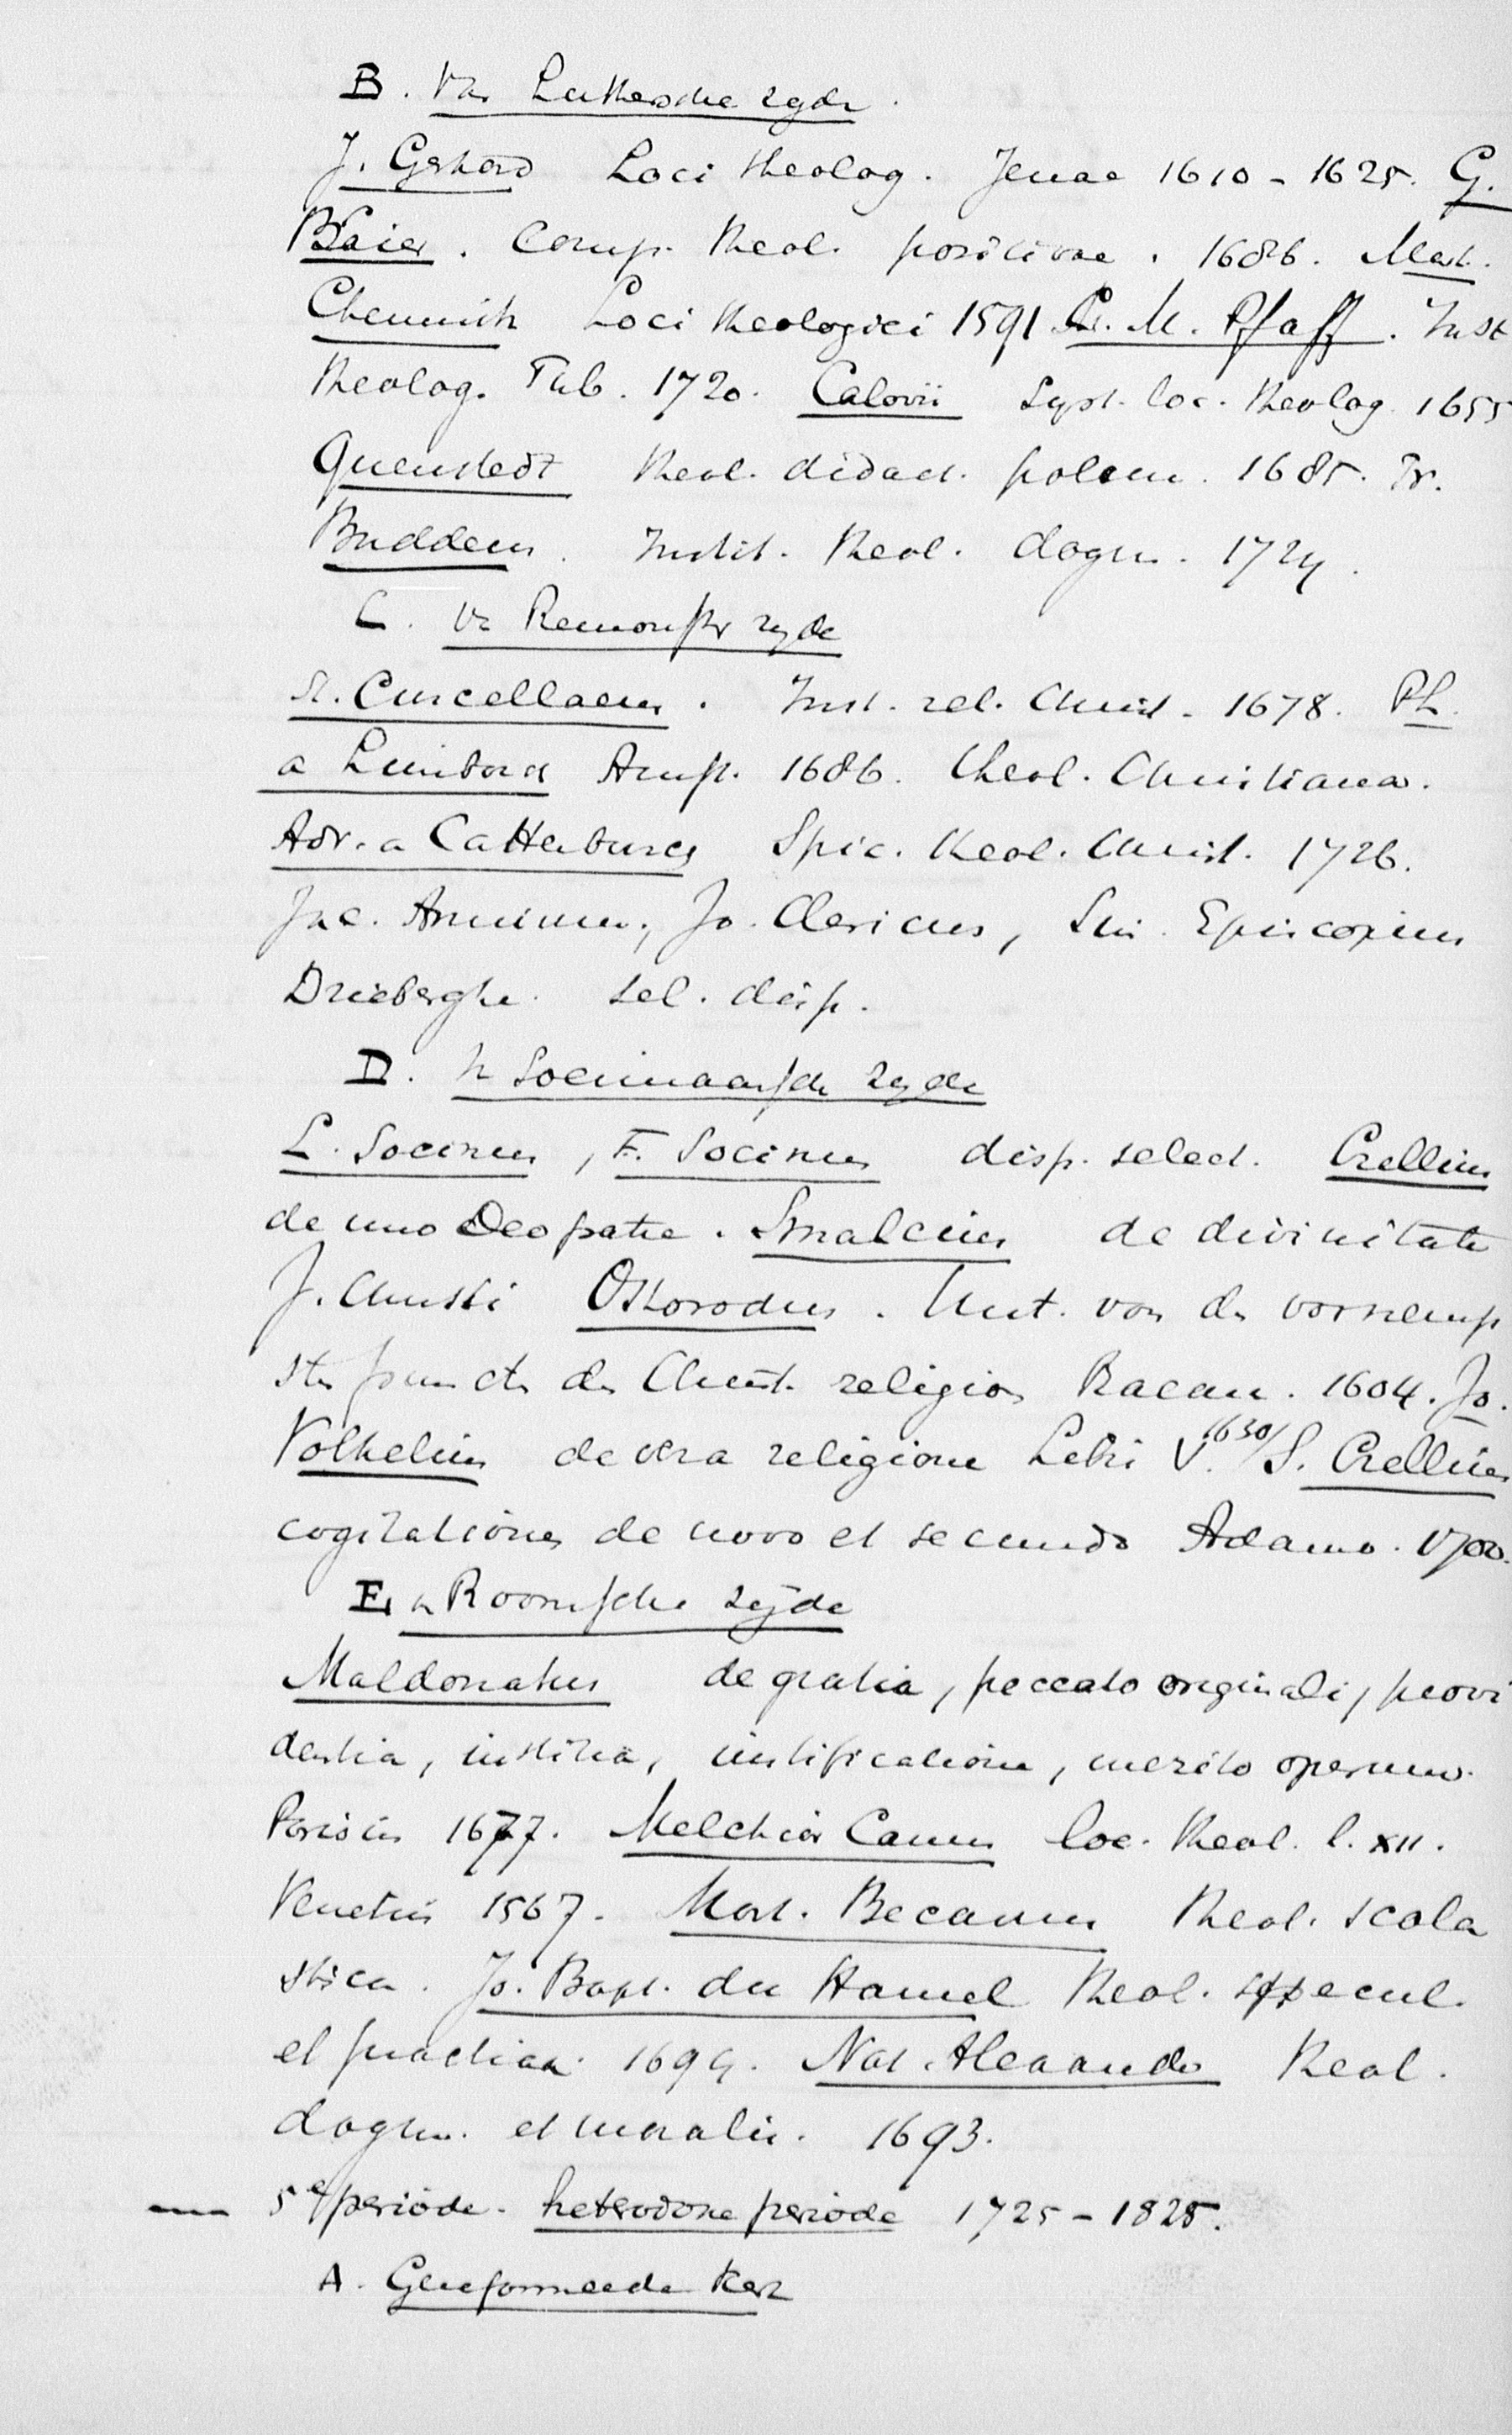 B. Van Luthersche zyde.
J. Gerhard Loci theolog. Jenae 1610 - 1625. G.
Baier. Comp. theol. positivae. 1686. Mart.
Chemnitz Loci theologici 1591 Chr. M. Pfaff. Inst
theolog. Tub. 1720. Calovii Syst. loc. theolog. 1655
Quenstedt theol. didact. polem. 1685. Fr.
Buddeus. Instit. theol. dogm. 1724.
C. Vn Remonstr zyde
St. Curcellaeus. Inst. rel. Christ. 1678. Ph.
a Limborch Amst. 1686. Theol. Christiana.
Adr. a Cattenburg Spic. theol. Christ. 1726.
Jac. Arminius, Jo. Clericus, Sim. Episcopius
Drieberghe. sel. disp.
D. Vn Sociniaansche zyde
L. Socinus, F. Socinus disp. select. Crellius
de uno Deo patre. Smalcius de divinitate
J. Christi Ostorodus. Unt. von dn vornemp
stn punctn dn Christ. religion Racau. 1604. Jo.
Volkelius de vera religione Libri V. 1630/ S. Crellius
cogitationes de novo et secundo Adamo. 1700.
E. Vn Roomsche zyde
Maldonatus de gratia, peccato originali, provi
dentia, iustitia, iustificatione, merito operum.
Parisiis 1677. Melchior Canus loc. theol. l. XII.
Venetiis 1567. Mart. Becanus theol. scola
stica. Jo. Bapt. du Hamel theol. specul.
et practica 1694. Nat. Alexander theol.
dogm. et moralis. 1693.
— 5e periode. heterodoxe periode 1725 - 1825.
A. Gereformeerde Kerk